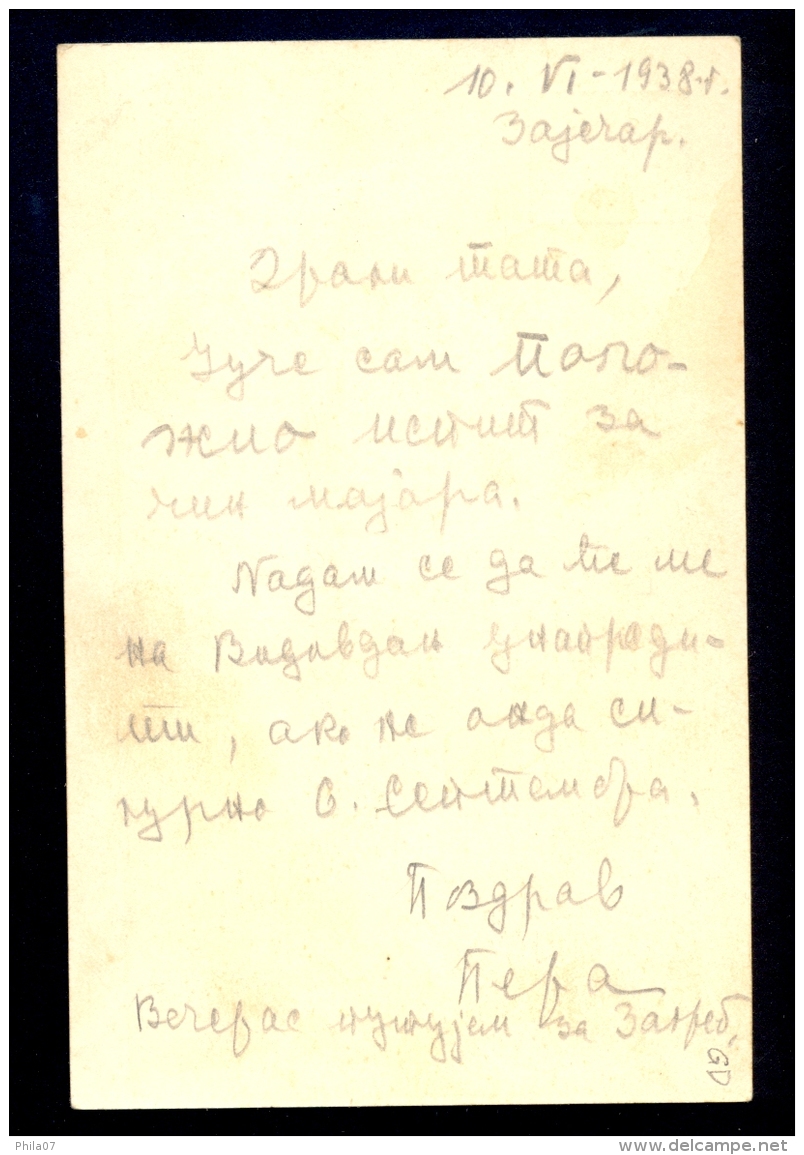 10. VI - 1938 г.
Зајечар.
Драги тата,
Јуче сам Поло-
жио испит за
чин мајора.
Надам се да ће ме
на Видовдан унапреди-
ти, ако не онда си-
гурно 6. Септембра.
Поздрав
Пера
Вечерас путујем за Загреб.
GD
Phila07
www.delcampe.net